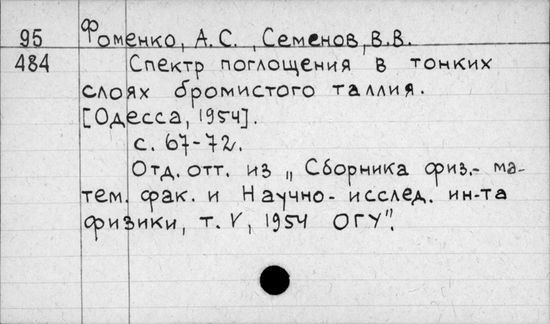 95 Фоменко, А.С., Семенов, В.В.
484 Спектр поглощения в тонких
слоях бромистого таллия.
[Одесса, 1954].
с. 67-72.
Отд. отт. из „Сборника физ.- ма-
тем. фак. и Научно- исслед. ин-та
физики, т. V, 1954 ОГУ".